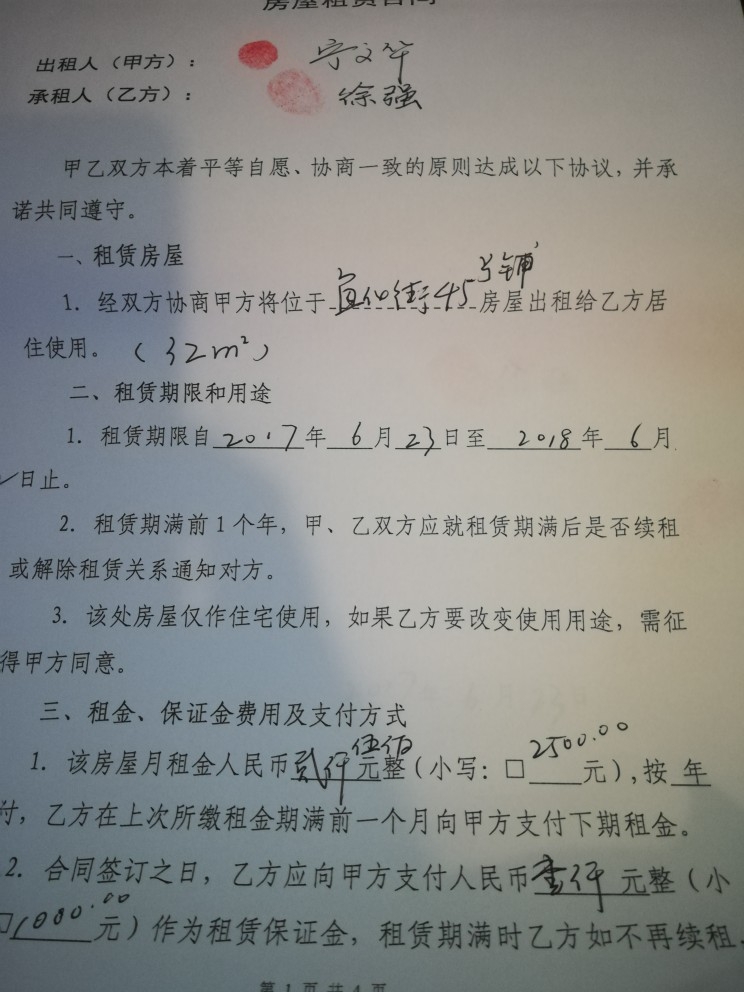 房屋租赁合同
出租人（甲方）： 宁文华
承租人（乙方）： 徐强
甲乙双方本着平等自愿、协商一致的原则达成以下协议，并承
诺共同遵守。
一、租赁房屋
1. 经双方协商甲方将位于宜仙街45号铺房屋出租给乙方居
住使用。（32m²）
二、租赁期限和用途
1. 租赁期限自2017年6月23日至2018年6月
日止。
2. 租赁期满前1个年，甲、乙双方应就租赁期满后是否续租
或解除租赁关系通知对方。
3. 该处房屋仅作住宅使用，如果乙方要改变使用用途，需征
得甲方同意。
三、租金、保证金费用及支付方式
1. 该房屋月租金人民币贰仟伍佰元整（小写：□2500.00元），按 年
付，乙方在上次所缴租金期满前一个月向甲方支付下期租金。
2. 合同签订之日，乙方应向甲方支付人民币壹仟元整（小
□1000.00元）作为租赁保证金，租赁期满时乙方如不再续租
第 1 页 共 4 页